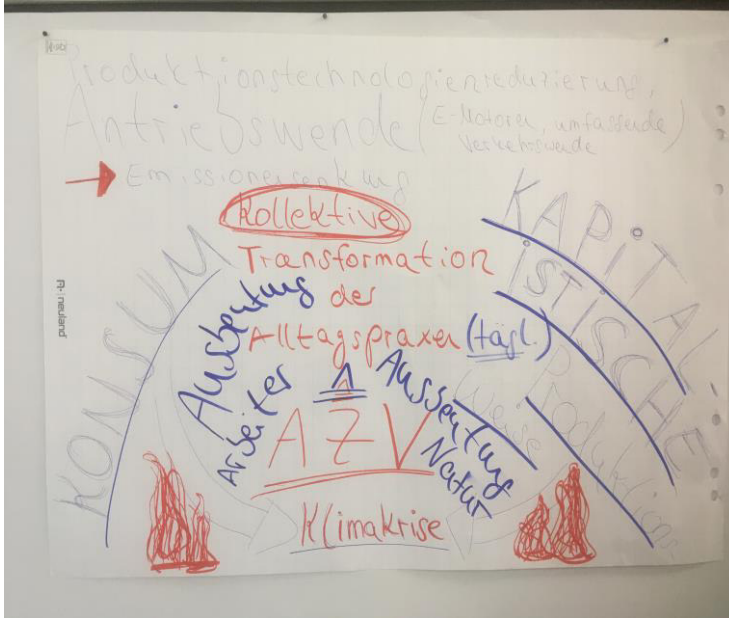 Produktionstechnologienreduzierung,
Antriebswende (E-Motoren, umfassende Verkehrswende)
→ Emissionensenkung
kollektive
Transformation
der
Alltagspraxen (tägl.)
KONSUM
KAPITAL-
ISTISCHE
Produktions-
weise
Ausbeutung
Arbeiter
Aussbeutung
Natur
AZV
Klimakrise
neuland